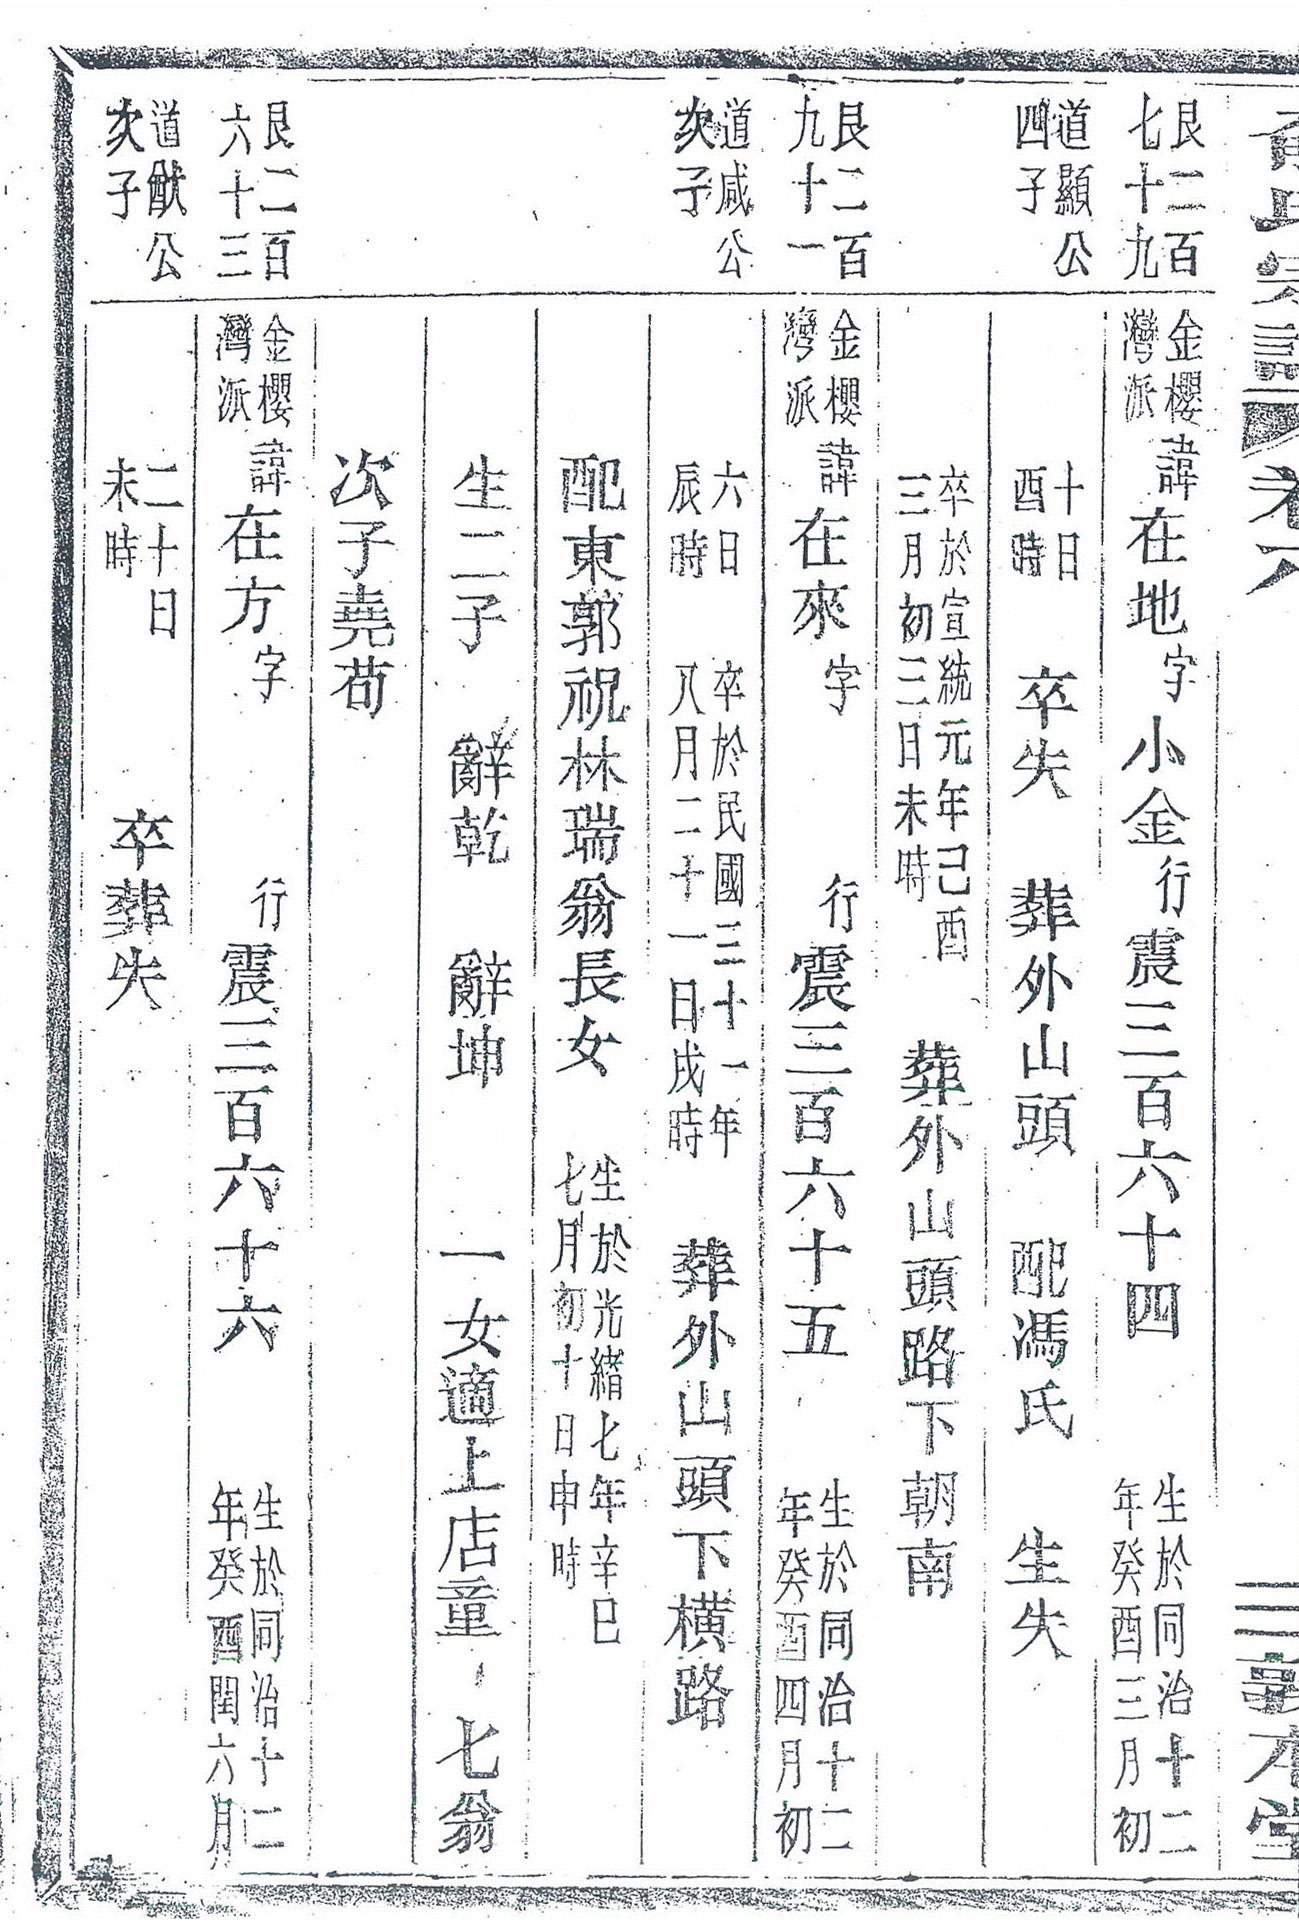 氏宗譜 卷六 三 敦本堂
艮二百七十九
道顯公四子
艮二百九十一
道咸公次子
艮二百六十三
道猷公次子
金櫻灣派 諱在地 字小金 行震三百六十四 生於同治十二年癸酉三月初
十日酉時 卒失 葬外山頭 配馮氏 生失
卒於宣統元年己酉三月初三日未時 葬外山頭路下朝南
金櫻灣派 諱在來 字 行震三百六十五 生於同治十二年癸酉四月初
六日辰時 卒於民國三十一年八月二十一日戌時 葬外山頭下橫路
配東郭祝林瑞翁長女 生於光緒七年辛巳七月初十日申時
生二子 辭乾 辭坤 一女適上店童七翁
次子堯苟
金櫻灣派 諱在方 字 行震三百六十六 生於同治十二年癸酉閏六月
二十日未時 卒葬失